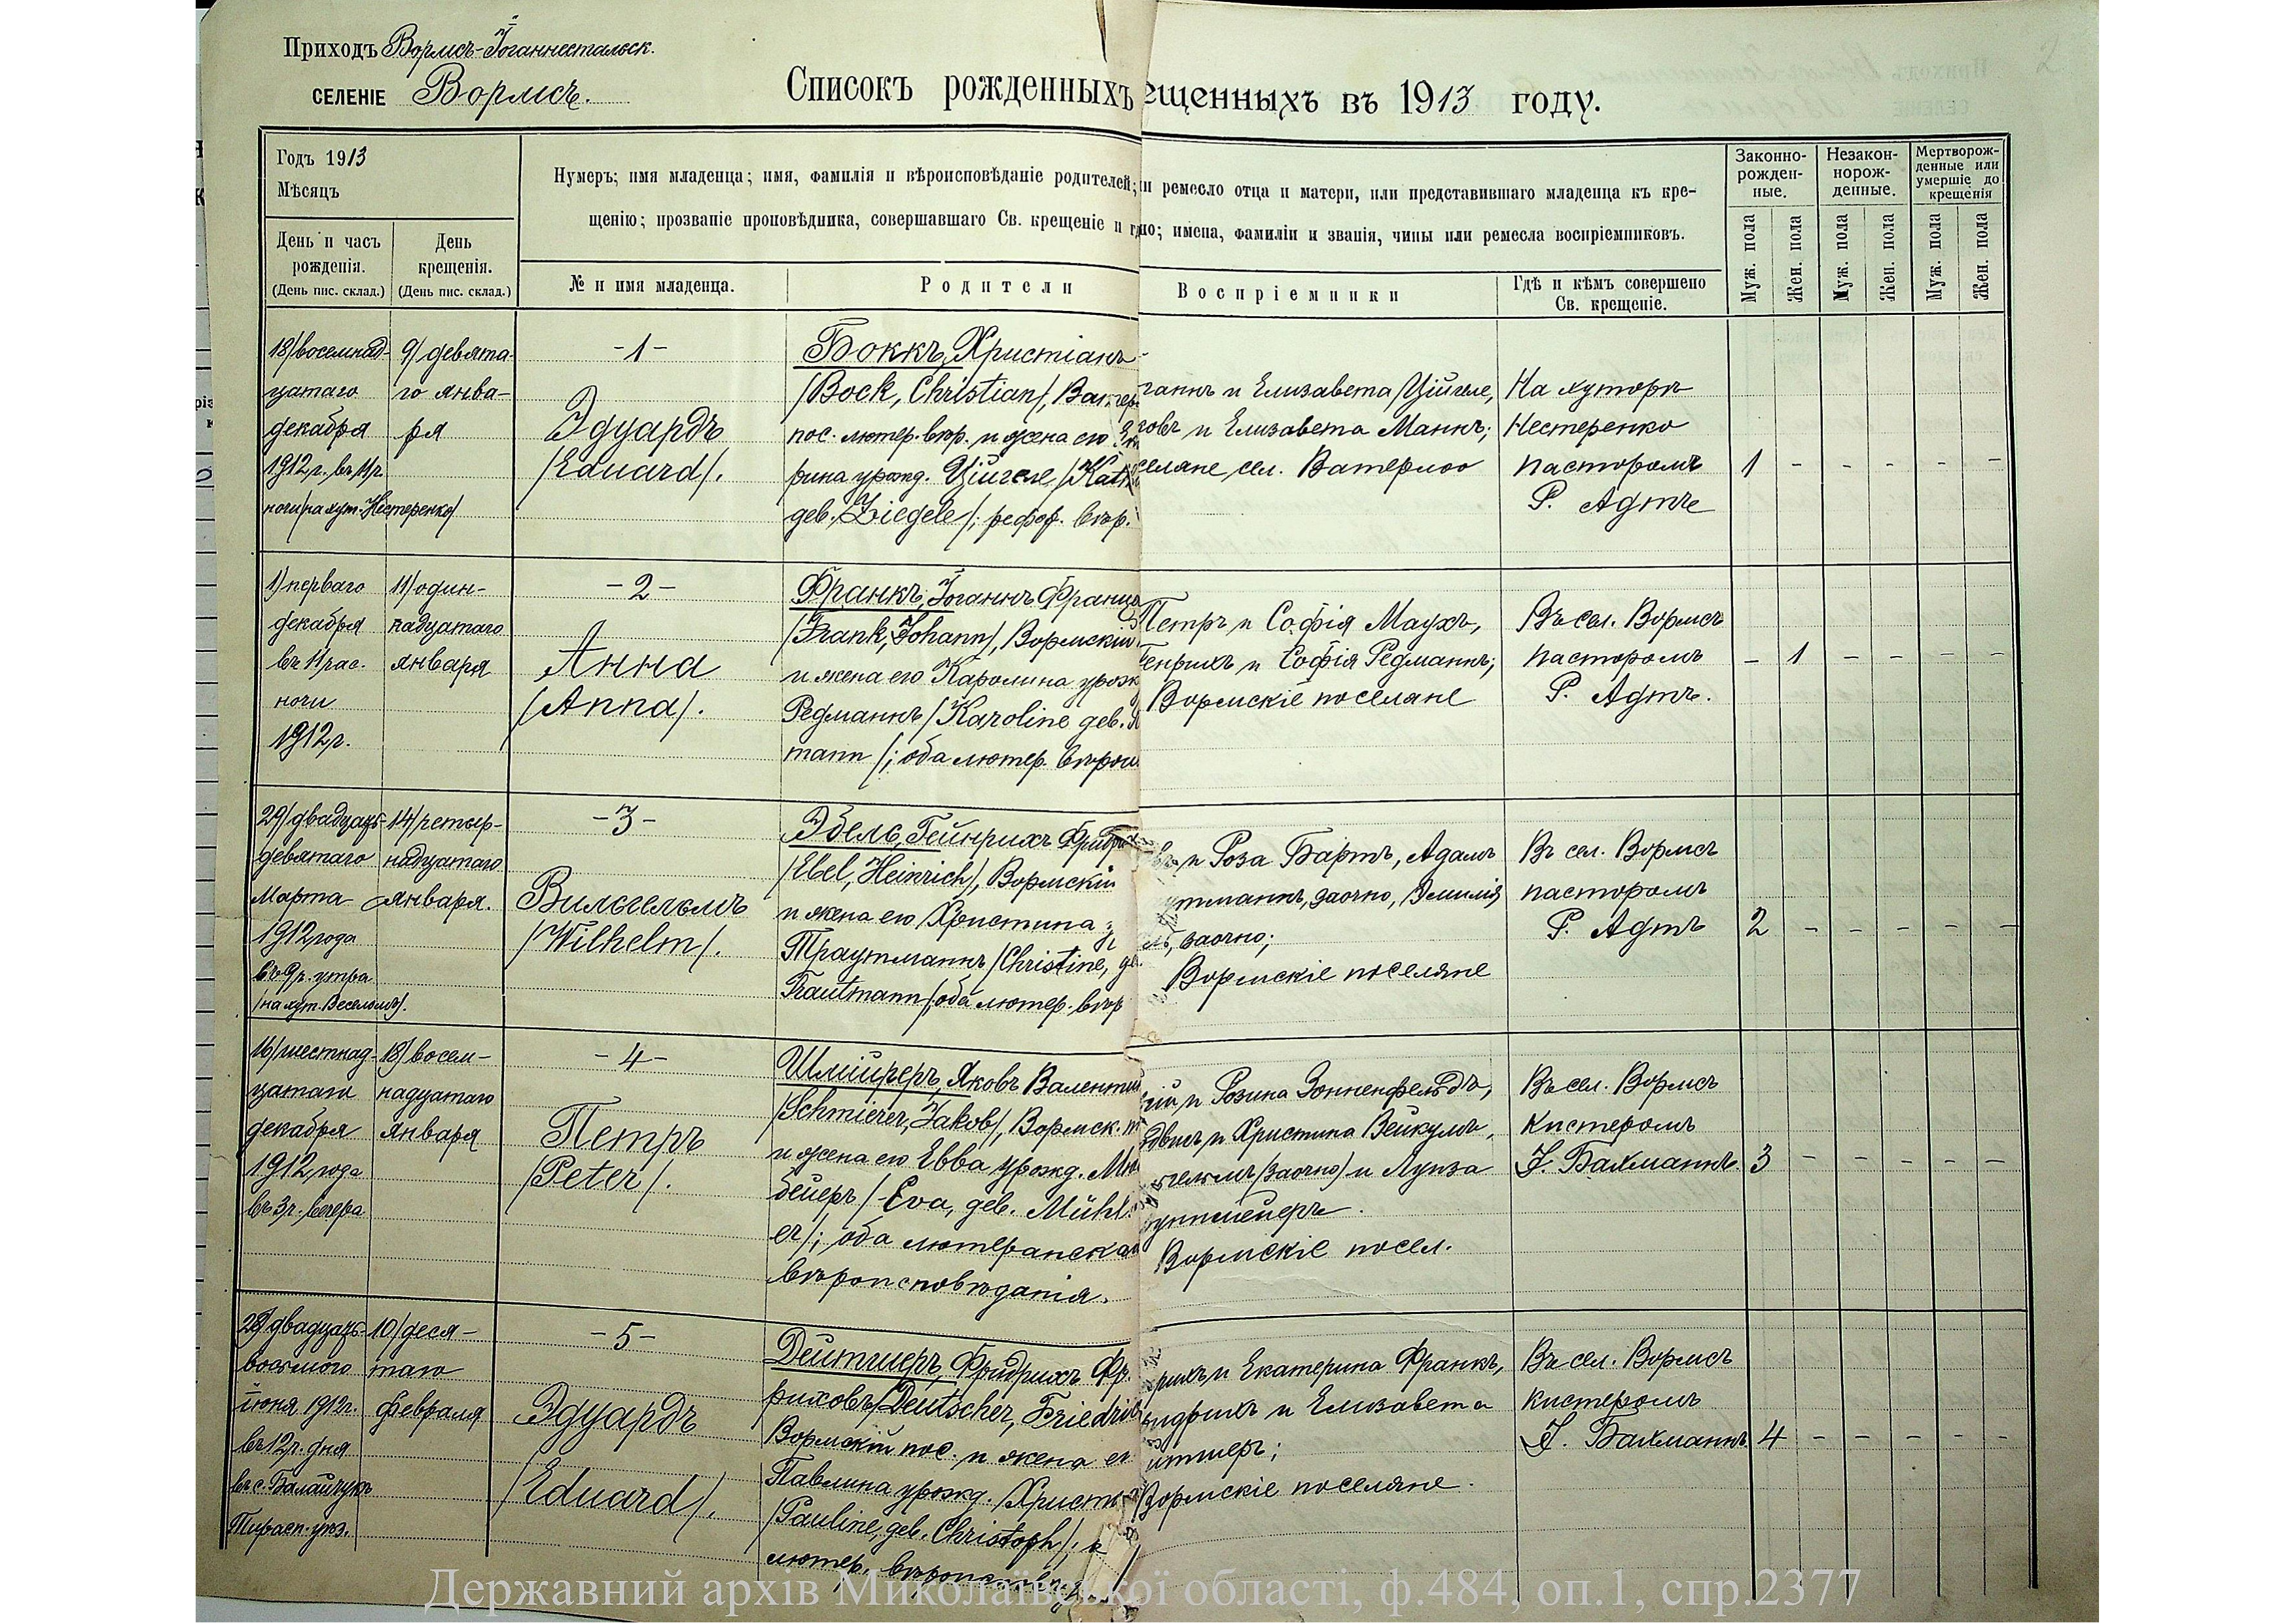 Приходъ Вормсъ-Іоганнестальск.
селеніе Вормсъ.
Списокъ рожденныхъ
ещенныхъ въ 1913 году.
Годъ 1913
Мѣсяцъ
День и часъ рожденія.
(День пис. склад.)
День крещенія.
(День пис. склад.)
Нумеръ; имя младенца; имя, фамилія и вѣроисповѣданіе родителей;
и ремесло отца и матери, или представившаго младенца къ кре-
щенію; прозваніе проповѣдника, совершавшаго Св. крещеніе и
но; имена, фамиліи и званія, чины или ремесла воспріемниковъ.
№ и имя младенца.
Родители
Воспріемники
Гдѣ и кѣмъ совершено
Св. крещеніе.
Законно-
рожден-
ные.
Незакон-
норож-
денные.
Мертворож-
денные или
умершіе до
крещенія
Муж. пола
Жен. пола
Муж. пола
Жен. пола
Муж. пола
Жен. пола
18/восемнад-
цатаго
декабря
1912 г. въ 11 ч.
ночи/на хут. Нестеренко/
9/девята-
го янва-
ря
-1-
Эдуардъ
/Eduard/.
Боккъ, Христіанъ
/Bock, Christian/,
пос. лютер. вѣр. и жена его
рина урожд. Ційгеле
дев. Ziegele/; рефор. вѣр.
ганнъ и Елизавета Ційгеле,
ковъ и Елизавета Маннъ;
селяне, сел. Ватерлоо
На хуторѣ
Нестеренко
пасторомъ
Р. Адтъ
1 - - - - -
1) перваго
декабря
въ 11 час.
ночи
1912 г.
11/один-
надцатаго
января
-2-
Анна
/Anna/.
Франкъ, Іоганнъ
/Frank, Johann/, Вормскій
и жена его Каролина
Редманнъ /Karoline дев.
mann/; оба лютер.
Петръ и Софія Маухъ,
Генрихъ и Софія Редманнъ;
Вормскіе поселяне
Въ сел. Вормсъ
пасторомъ
Р. Адтъ.
- 1 - - - -
29/двадцать-
девятаго
марта
1912 года
въ 9 ч. утра
/на хут. Веселомъ/.
14/четыр-
надцатаго
января.
-3-
Вильгельмъ
/Wilhelm/.
Эбель, Гейнрихъ
/Ebel, Heinrich/, Вормскій
и жена его Христина
Траутманнъ /Christine,
Trautmann/, оба лютер. вѣр
и Роза Бартъ, Адамъ
утманнъ, заочно, Эмилія
заочно;
Вормскіе поселяне
Въ сел. Вормсъ
пасторомъ
Р. Адтъ
2 - - - - -
16/шестнад-
цатаго
декабря
1912 года
въ 3 ч. вечера
18/восем-
надцатаго
января
-4-
Петръ
/Peter/.
Шмійреръ, Яковъ
/Schmierer, Jakob/, Вормск.
и жена его Евва урожд.
бейеръ /-Eva, дев. Mühl
er/; оба лютеранскаго
вѣроисповѣданія.
и Розина Зонненфельдъ,
и Христина Вейкумъ,
/заочно/ и Луиза
Вормскіе посел.
Въ сел. Вормсъ
Кистеромъ
Я. Бахманнъ.
3 - - - - -
28/двадцать-
восьмого
іюня 1912 г.
въ 12 ч. дня
въ с. Балайчукъ
Тирасп. уѣз.
10/деся-
таго
февраля
-5-
Эдуардъ
/Eduard/.
Дейтшеръ, Фридрихъ
риховъ /Deutscher,
Вормскій пос. и жена
Павлина урожд.
/Pauline, дев. Christoph/;
лютер.
и Екатерина Франкъ,
и Елизавета
йтшеръ;
Вормскіе поселяне.
Въ сел. Вормсъ
кистеромъ
Я. Бахманнъ
4 - - - - -
Державний архів Миколаївської області, ф.484, оп.1, спр.2377